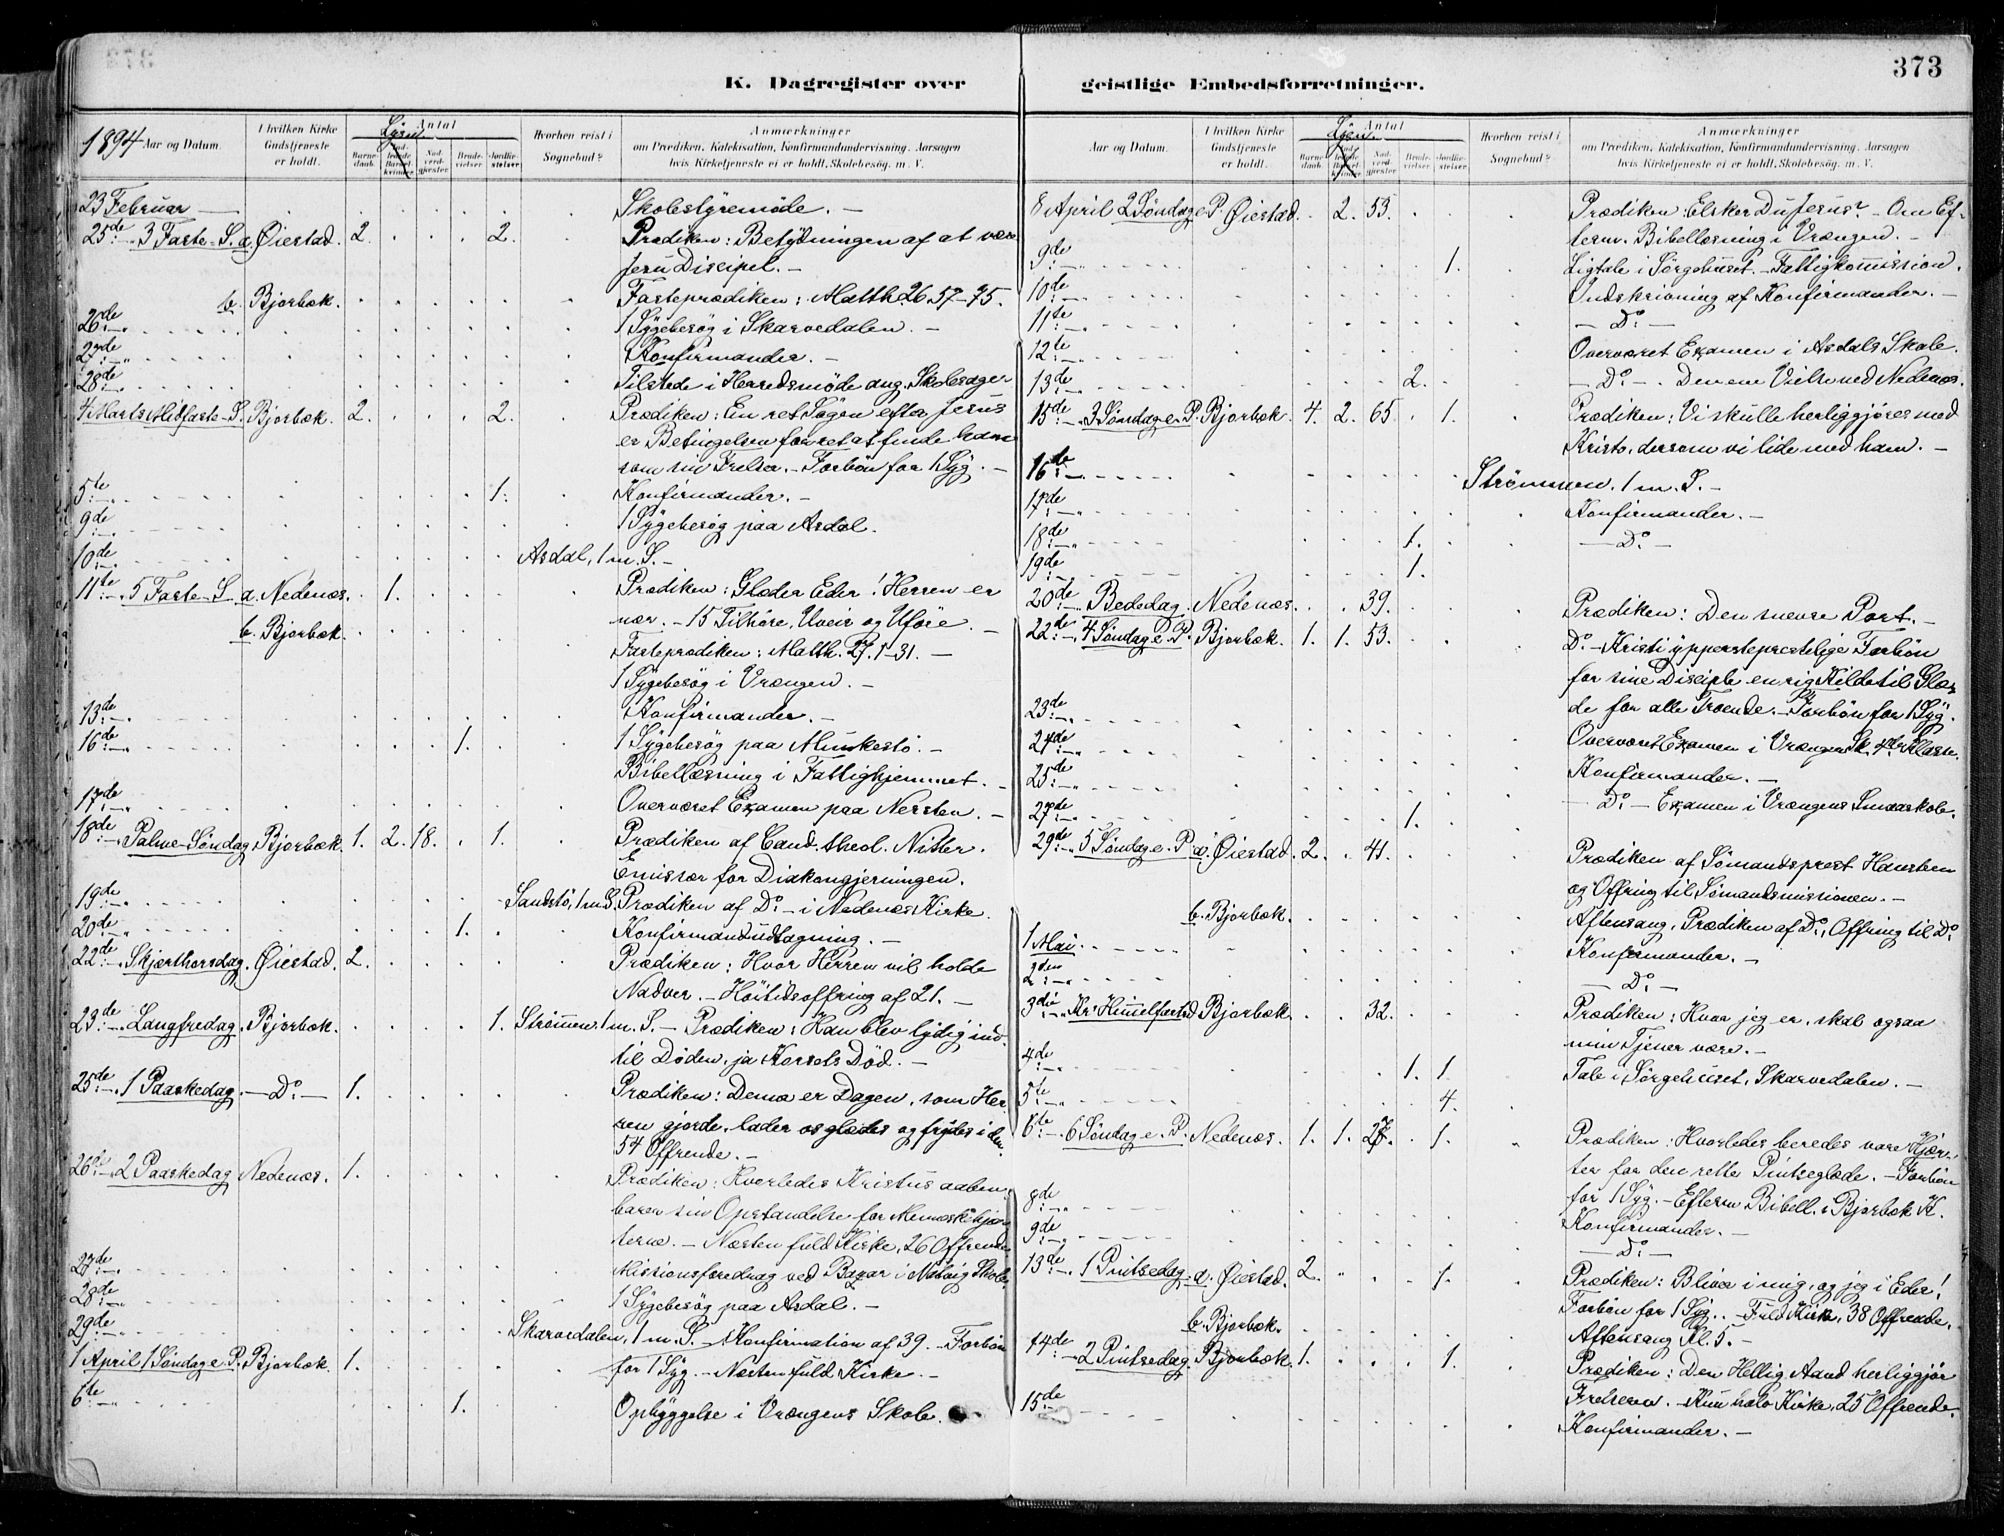 373
K. Dagregister over geistlige Embedsforretninger.
1894 Aar og Datum.
I hvilken Kirke Gudstjeneste er holdt.
Antal
Lysn.
Barnedaab.
Nadverdgjæster.
Brudevielser.
Jordfæstelser.
Hvorhen reist i Sognebud?
Anmærkninger
om Prædiken, Katekisation, Konfirmandundervisning, Aarsagen
hvis Kirketjeneste ei er holdt, Skolebesøg. m. V.
23 Februar Skolestyremøde. –
25de 3 Faste-S. a. Øiestad. 2. 2. Prædiken: Betydningen af at være
Jesu Discipel. –
b. Bjorbæk. Fasteprædiken: Matth. 26. 57–75.
26de 1 Sygebesøg i Skarvedalen. –
27de Konfirmander. –
28de Tilstede i Herredsmøde ang. Skolesager
4 Marts Midfaste-S. Bjorbæk. 2. 2. Prædiken: En ret Søgen efter Jesus
er Betingelsen for ret at finde ham
som sin Frelser. – Forbøn for 1 Syg. –
5te 1. Konfirmander. –
9de 1 Sygebesøg paa Asdal.
10de Asdal, 1 m. S. –
11te 5 Faste-S. a. Nedenæs. 1. Prædiken: Glæder Eder! Herren er
nær. – 15 Tilhøre, Uveir og Uføre. –
b. Bjorbæk. Fasteprædiken: Matth. 27. 1–31. –
1 Sygebesøg i Vrængen. –
13de Konfirmander. –
16de 1. 1 Sygebesøg paa Munkestø. –
Bibellæsning i Fattighjemmet. –
17de Overværet Examen paa Nersten. –
18de Palme-Søndag. Bjorbæk. 1. 2. 18. 1. Prædiken af Cand. theol. Nitter.
Emissær for Diakongjerningen.
19de Sandstø, 1 m. S. Prædiken af Do – i Nedenæs Kirke.
20de 1. Konfirmandudtagning. –
22de Skjærthorsdag. Øiestad. 2. Prædiken: Hvor Herren vil holde
Nadver. – Høitidsoffring af 21. –
23de Langfredag. Bjorbæk. 1. Strømmen, 1 m. S. – Prædiken: Han blev lydig ind-
til Døden, ja Korsets Død. –
25de 1 Paaskedag. – Do – 1. Prædiken: Denne er Dagen, som Her-
ren gjorde, lader os glædes og frydes i den.
54 Offrende. –
26de 2 Paaskedag Nedenæs. 1. Prædiken: Hvorledes Kristus aaben-
barer sin Opstandelse for Menneskehjer-
terne. – Næsten fuld Kirke, 26 Offrende
27de Missionsforedrag ved Bazar i Natvig Skole.
28de 1 Sygebesøg paa Asdal. –
29de Skarvedalen, 1 m. S.
1 April 1 Søndag e. P. Bjorbæk. 1. Konfirmation af 39. – Forbøn
for 1 Syg. – Næsten fuld Kirke. –
6te 1. Opbyggelse i Vrængens Skole.
Aar og Datum.
I hvilken Kirke Gudstjeneste er holdt.
Antal
Lysn.
Barnedaab.
Nadverdgjæster.
Brudevielser.
Jordfæstelser.
Hvorhen reist i Sognebud?
Anmærkninger
om Prædiken, Katekisation, Konfirmandundervisning, Aarsagen
hvis Kirketjeneste ei er holdt, Skolebesøg. m. V.
8 April 2 Søndag e. P. Øiestad. 2. 53. Prædiken: Elsker Du Jesus? – Om Ef-
term. Bibellæsning i Vrængen. –
9de 1. Ligtale i Sørgehuset. – Fattigkommission.
10de Indskrivning af Konfirmander. –
11te – Do –
12te Overværet Examen i Asdals Skole.
13de 2. – Do – . Den ene Vielse ved Nedenæs.
15de 3 Søndag e. P. Bjorbæk. 4. 2. 65. 1. Prædiken: Vi skulle herliggjøres med
Kristo, dersom vi lide med ham. –
16de Strømmen, 1 m. S. –
17de Konfirmander. –
18de 1. – Do –
19de 1.
20de Bededag. Nedenæs. 39. Prædiken: Den snevre Port. –
22de 4 Søndag e. P. Bjorbæk. 1. 1. 53. Do – Kristi ypperstepræstelige Forbøn
for sine Disciple en rig Kilde til Glæ-
de for alle Troende. – Forbøn for 1 Syg.
23de Overværet Examen i Vrængens Sk. 4de Klasse.
24de Konfirmander. –
25de – Do – Examen i Vrængens Smaaskole.
27de 1.
29de 5 Søndag e. P. a. Øiestad. 2. 41. Prædiken af Sømandsprest Hansteen
og Offring til Sømandsmissionen. –
b. Bjorbæk. Aftensang, Prædiken af Do, Offring til Do
1 Mai Konfirmander. –
2den – Do –
3die Kr. Himmelfartsd Bjorbæk. 32. Prædiken: Hvor jeg er, skal ogsaa
min Tjener være. –
4de 1. 1. Tale i Sørgehuset, Skarvedalen. –
5te 4.
6te 6 Søndag e. P. Nedenæs. 1. 1. 27. 1. Prædiken: Hvorledes beredes vore Hjer-
ter for den rette Pintseglæde. – Forbøn
for 1 Syg. – Efterm Bibell. i Bjorbæk K.
8de Konfirmander. –
9de – Do –
13de 1 Pintsedag a. Øiestad. 2. 1. Prædiken: Bliver i mig, og jeg i Eder!
Forbøn for 1 Syg. – Fuld Kirke, 38 Offrende.
b. Bjorbæk. Aftensang Kl. 5. –
14de 2 Pintsedag. Bjorbæk. 1. 1. Prædiken: Den Hellig Aand herliggjør
Frelseren. – Kun halv Kirke, 25 Offrende.
15de Konfirmander. –